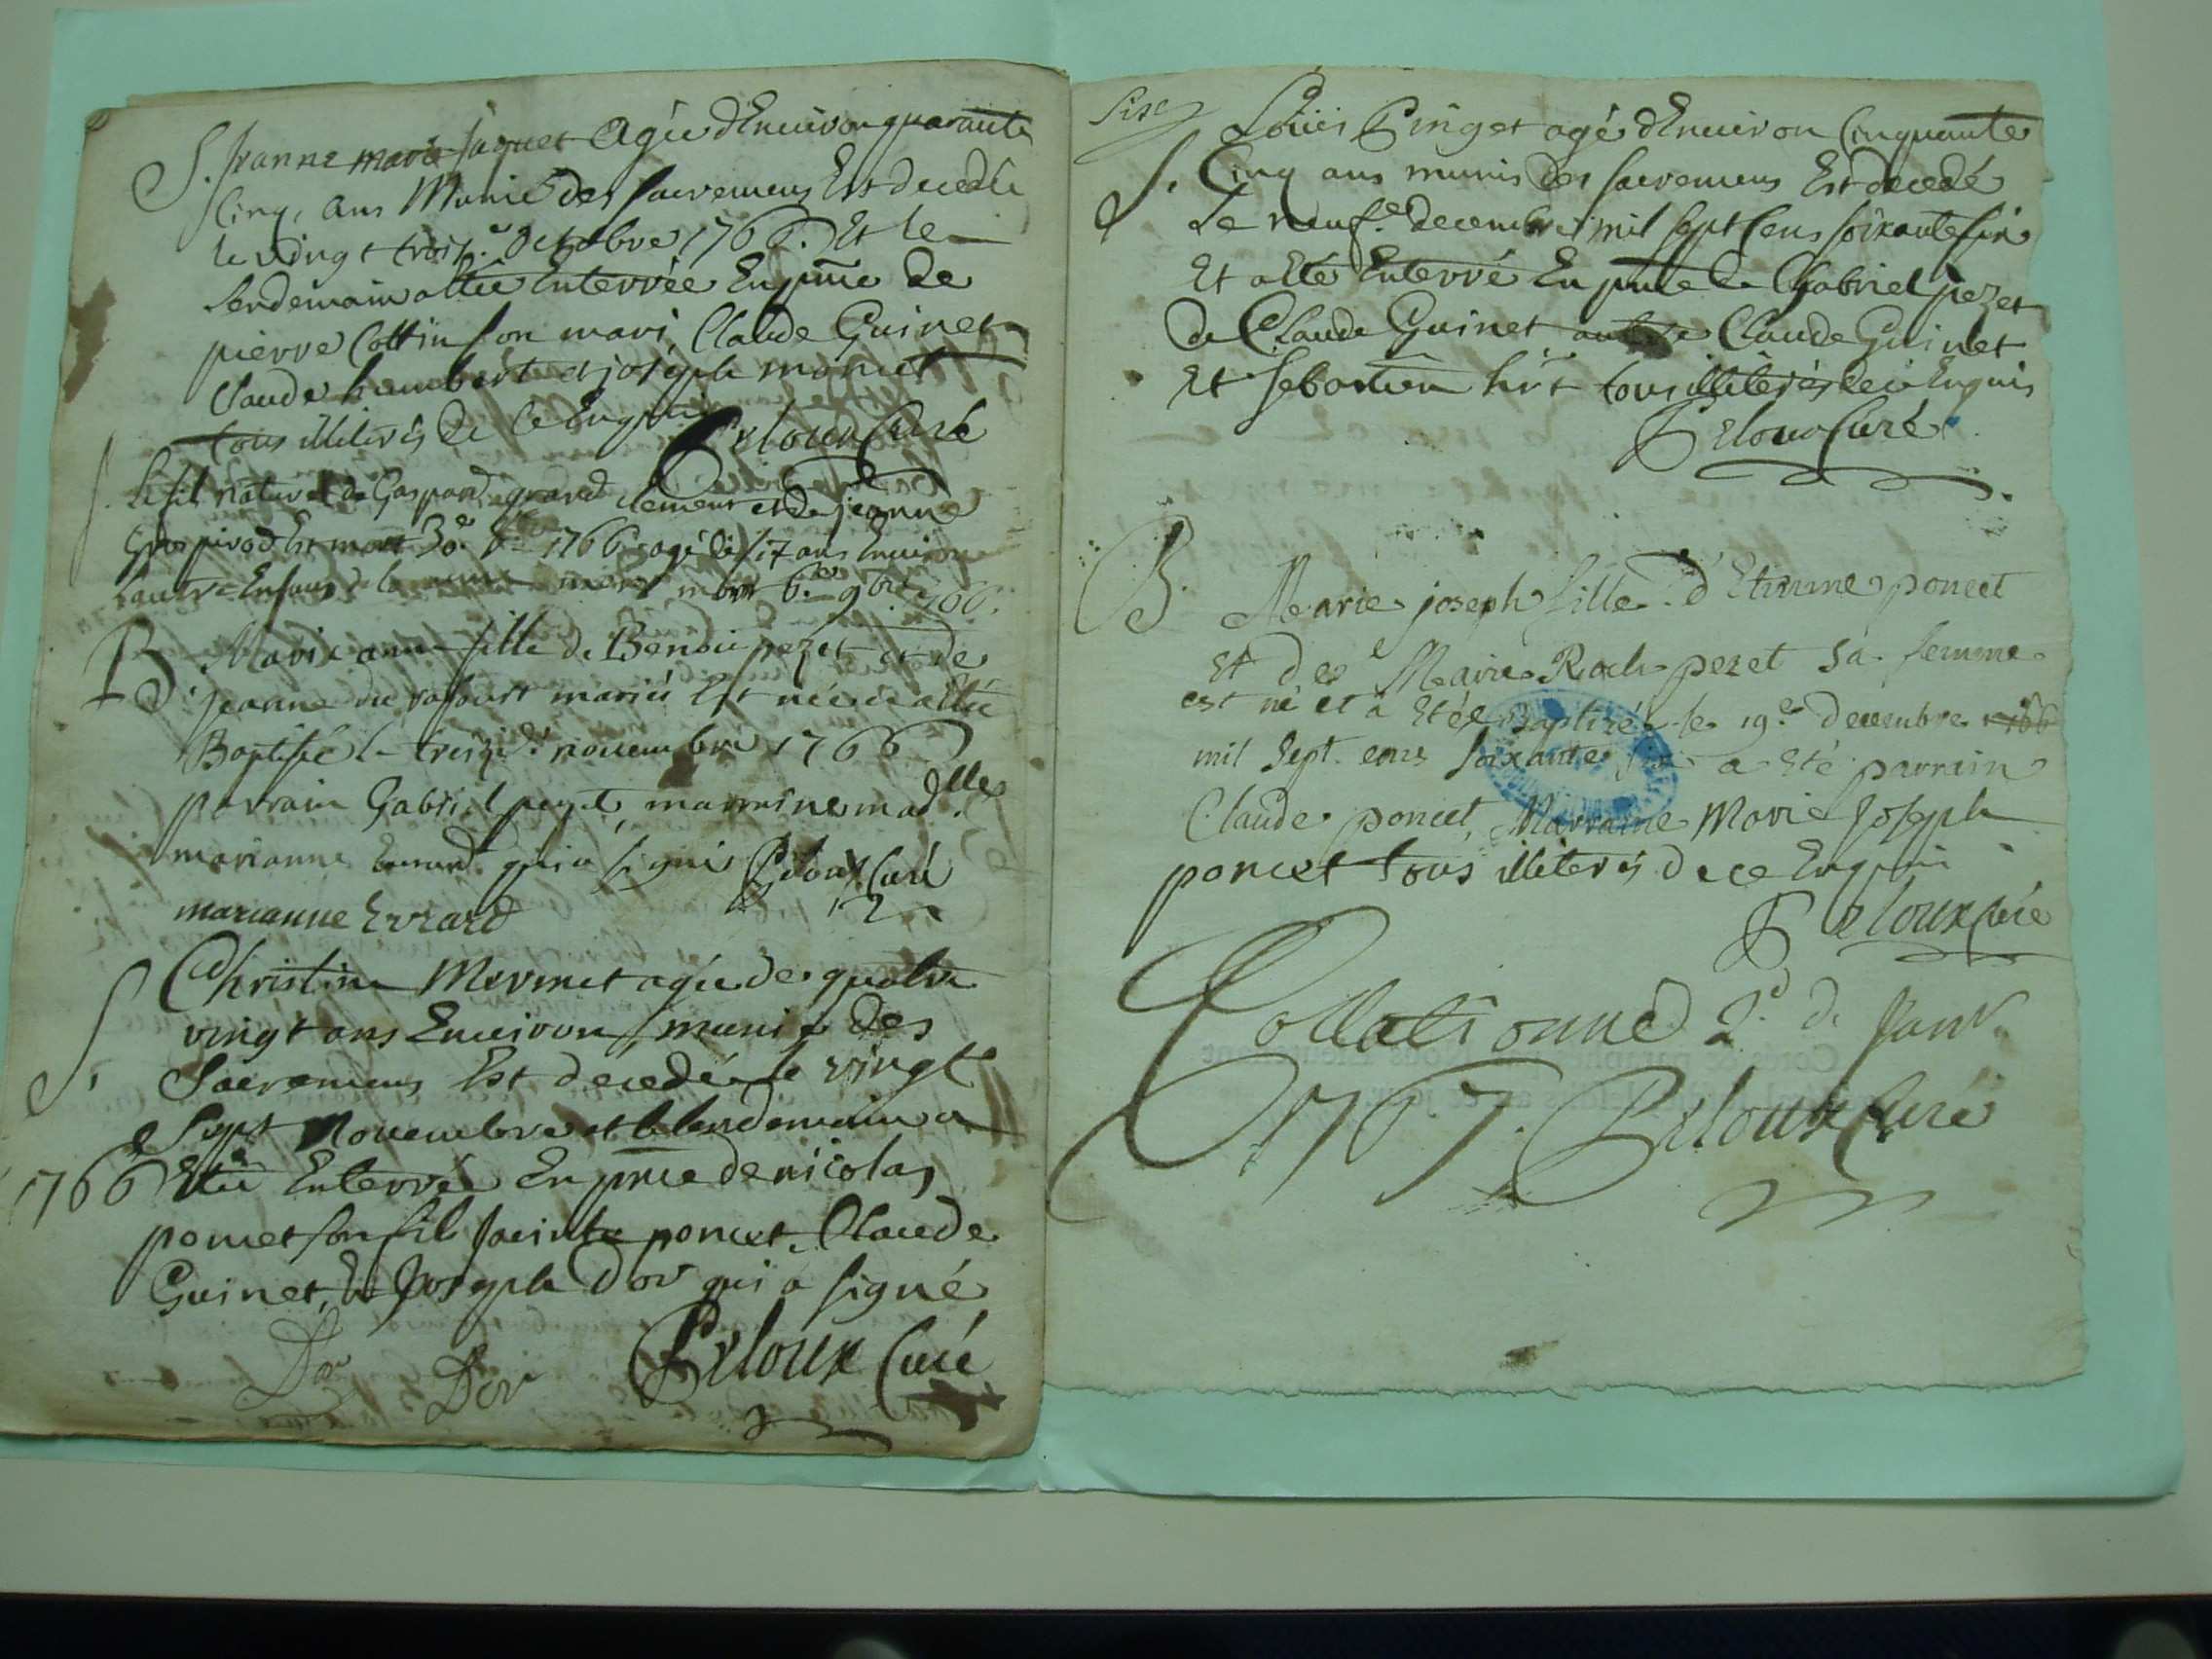 S. Jeanne marie Jaquet Agée d'Environ quarante
Cinq, ans Munie des sacremens Est decedée
le vingt trois.e Octobre 1766. Et le
lendemain a étée Enterrée En pnce de
pierre Cottin son mari, Claude Guinet
Claude humbert et joseph monet
tous illiterés De Ce Enquis
Peloux Curé
S. le fil naturel de Gaspard grand clement et de jeanne
Gros pirod Est mort 30.e 1766 agé de 17 ans Environ
lautre Enfans de la meme mere mort 6.e 9bre 1766.
B. Marie anne fille de Benoit pezet et de
jeanne du rafourt mariés Est née et a étée
Baptisée le treizi.e novembre 1766
parrain Gabriel pezet, marraine mad.lle
marianne Evrard qui a signé Peloux Curé
marianne Evrard
S. Christine Mermet agée de quatre
vingt ans Environ munie des
Sacremens Est decedée le vingt
Sept Novembre et le lendemain a
1766 Etée Enterrée En pnce de nicolas
poncet son fil Jacinte poncet, Claude
Guinet, Et Joseph Dor qui a signé
Dor Dor Peloux Curé
Sixe
Loüis Pinget agé d'Environ Cinquante
S. Cinq ans munis Des sacremens Est decedé
Le neuf.e decembre mil sept Cens soixante six
Et a Eté Enterré En pnce de Gabriel pezet
de Claude Guinet, autre Claude Guinet
Et Sebastien tous illiterés de ce Enquis
Peloux Curé
B. Marie joseph fille d'Etienne poncet
Et de Marie Roch pezet sa femme
est né et a Etée Baptizée le 19.e decembre 1766
mil Sept cens soixante six a Eté parrain
Claude poncet, Marraine Marie Joseph
poncet tous illiterés de ce Enquis
Peloux Curé
Collationné 2.e de Janv.
1767. Peloux Curé